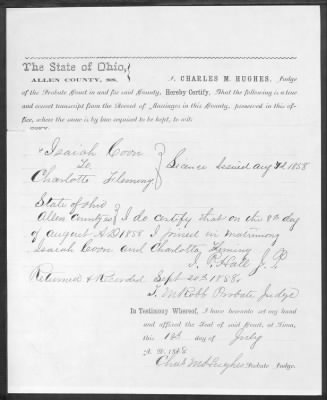 The State of Ohio,
ALLEN COUNTY, SS.
I, CHARLES M. HUGHES, Judge
of the Probate Court in and for said County, Hereby Certify, That the following is a true
and correct transcript from the Record of Marriages in this County, preserved in this of-
fice, where the same is by law required to be kept, to wit:
COPY.
Isaiah Coon
To
Charlotte Fleming
License Issued Aug 7d 1858
State of Ohio
Allen County ss I do certify that on the 8th day
of August A.D. 1858 I joined in matrimony
Isaiah Coon and Charlotte Fleming
I. P. Hall J. P.
Returned & Recorded Sept 20th 1858.
T. M Robb Probate Judge
In Testimony Whereof, I have hereunto set my hand
and affixed the Seal of said Court, at Lima,
this day of July
A. D. 18
Chas M Hughes Probate Judge.